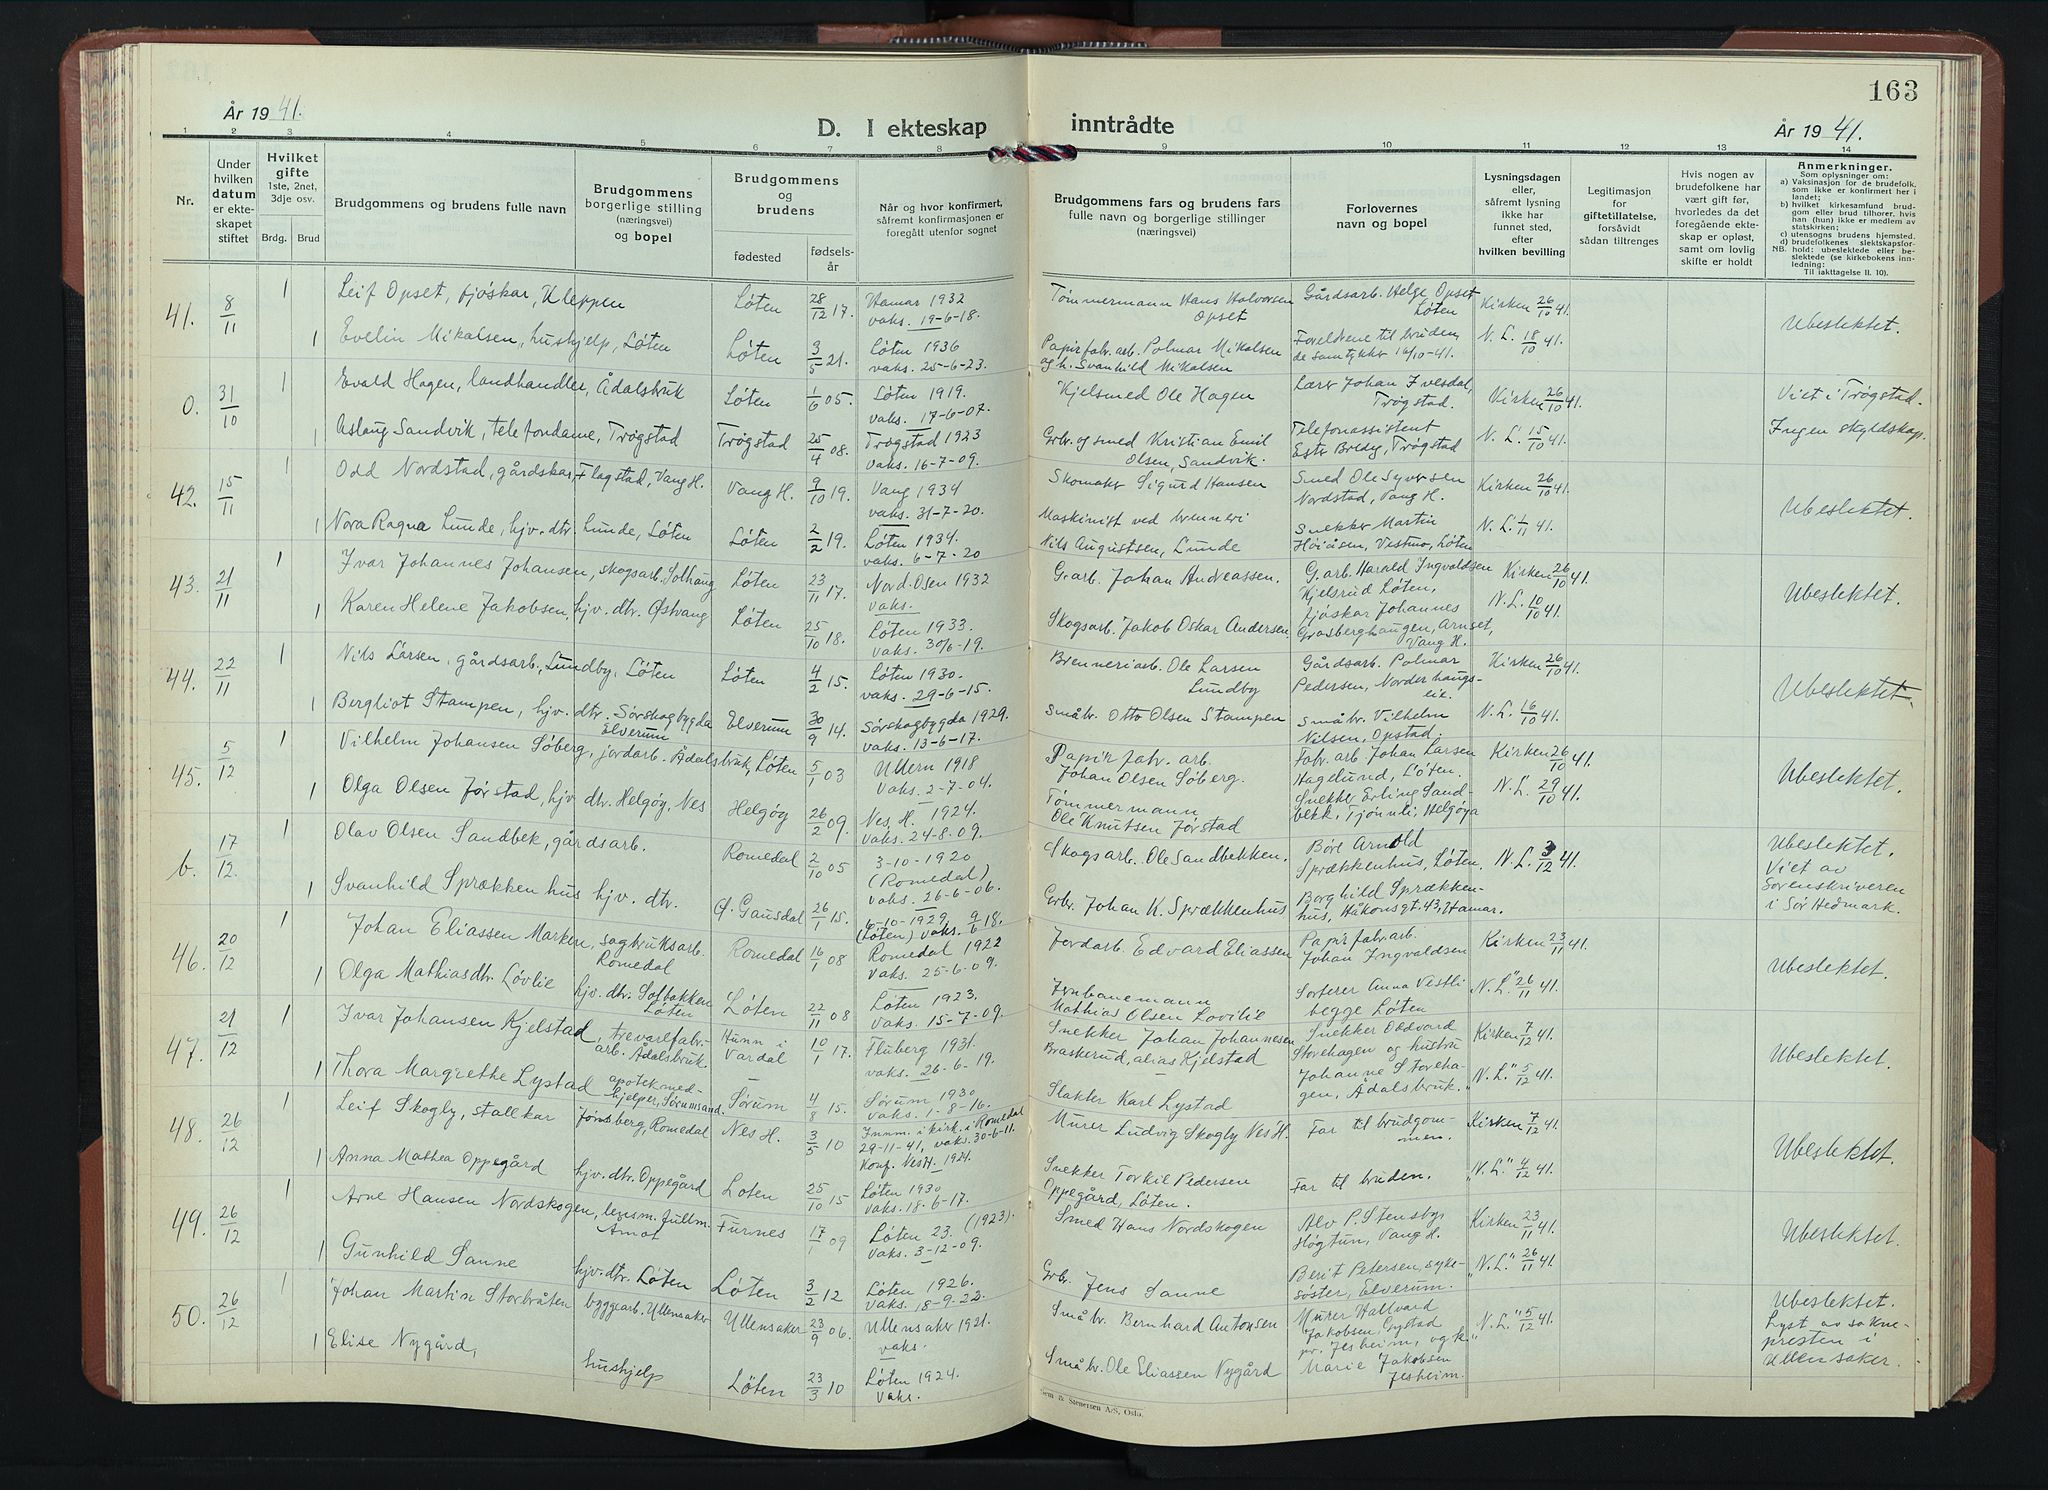 163
År 1941.
D. I ekteskap inntrådte
År 1941.
1 2 3 4 5 6 7 8 9 10 11 12 13 14
Nr.
Under hvilken datum er ekteskapet stiftet
Hvilket gifte 1ste, 2net, 3dje osv.
Brdg. Brud
Brudgommens og brudens fulle navn
Brudgommens borgerlige stilling (næringsvei) og bopel
Brudgommens og brudens
fødested fødselsår
Når og hvor konfirmert, såfremt konfirmasjonen er foregått utenfor sognet
Brudgommens fars og brudens fars fulle navn og borgerlige stillinger (næringsvei)
Forlovernes navn og bopel
Lysningsdagen eller, såfremt lysning ikke har funnet sted, efter hvilken bevilling
Legitimasjon for giftetillatelse, forsåvidt sådan tiltrenges
Hvis nogen av brudefolkene har vært gift før, hvorledes da det foregående ekteskap er opløst, samt om lovlig skifte er holdt
Anmerkninger.
Som oplysninger om:
a) Vaksinasjon for de brudefolk, som ikke er konfirmert her i landet;
b) hvilket kirkesamfund brudgom eller brud tilhører, hvis han (hun) ikke er medlem av statskirken;
c) utensogns brudens hjemsted.
d) brudefolkenes slektskapsforhold: ubeslektede eller beslektede (se kirkebokens innledning:
NB. Til iakttagelse II. 10).
41. 8/11 1 Leif Opset, fjøskar, Kleppen Løten 28/12 17. Hamar 1932 vaks. 19-6-18. Tømmermann Hans Halvorsen Opset Gårdsarb. Helge Opset Løten Kirken 26/10 41. Ubeslektet.
1 Evelin Mikalsen, hushjelp, Løten Løten 3/5 21. Løten 1936 vaks. 25-6-23. Papirfabr. arb. Polmar Mikalsen og h. Svanhild Mikalsen Foreldrene til bruden, de samtykker 16/10-41. N. L. 18/10 41.
0. 31/10 1 Evald Hagen, landhandler, Ådalsbruk Løten 1/6 05. Løten 1919. vaks. 17-6-07. Hjelsmed Ole Hagen Lærer Johan Ivesdal, Trøgstad. Kirken 26/10 41. Viet i Trøgstad.
1 Aslaug Sandvik, telefondame, Trøgstad Trøgstad 25/4 08. Trøgstad 1923 vaks. 16-7-09. Grbr. og smed Kristian Emil Olsen, Sandvik. Telefonassistent Ester Boldig, Trøgstad N. L. 15/10 41. Ingen skyldskap.
42. 15/11 1 Odd Nordstad, gårdskar, Flagstad, Vang H. Vang H. 9/10 19. Vang 1934 vaks. 31-7-20. Skomaker Sigurd Hansen Smed Ole Syversen Nordstad, Vang H. Kirken 26/10 41. Ubeslektet.
1 Nora Ragna Lunde, hjv. dtr. Lunde, Løten Løten 2/2 19. Løten 1934. vaks. 6-7-20 Maskinist ved brenneri Nils Augustsen, Lunde Snekker Martin Høiåsen, Vestmo, Løten N. L. 1/11 41.
43. 21/11 1 Ivar Johannes Johansen, skogsarb. Solhaug Løten 23/11 17. Nord. Osen 1932 vaks. G. arb. Johan Andreassen. G. arb. Harald Ingvaldsen Hjelsrud Løten, Kirken 26/10 41. Ubeslektet.
1 Karen Helene Jakobsen, hjv. dtr. Østvang Løten 25/10 18. Løten 1933. vaks. 30/6-19. Skogsarb. Jakob Oskar Andersen fjøskar Johannes Grasberghaugen, Arnset, Vang H. N. L. 10/10 41.
44. 22/11 1 Nils Larsen, gårdsarb., Lundby, Løten Løten 4/2 15. Løten 1930. vaks. 29-6-15. Brenneriarb. Ole Larsen Lundby Gårdsarb. Polmar Pedersen, Norderhaugseie. Kirken 26/10 41. Ubeslektet.
1 Bergliot Stampen, hjv. dtr. Sørskogbygda Elverum Elverum 30/9 14. Sørskogbygda 1929. vaks. 13-6-17. Småbr. Otto Olsen Stampen Småbr. Vilhelm Nilsen, Opstad. N. L. 16/10 41.
45. 5/12 1 Vilhelm Johansen Søberg, jordarb. Ådalsbruk, Løten 5/1 03 Ullern 1918 vaks. 2-7-04. Papirfabr. arb. Johan Olsen Søberg. Fabr. arb. Johan Larsen Hagelund, Løten. Kirken 26/10 41. Ubeslektet.
1 Olga Olsen Jørstad, hjv. dtr. Helgøy, Nes Helgøy 26/2 09. Nes, H. 1924. vaks. 24-8-09. Tømmermann Ole Knutsen Jørstad Snekker Erling Sandbekk, Tjønnli, Helgøya N. L. 29/10 41.
b. 17/12. 1 Olav Olsen Sandbek, gårdsarb. Romedal 2/10 05 3-10-1920 (Romedal) vaks. 26-6-06. Skogsarb. Ole Sandbekken. Børe Arnold Sprækkenhus, Løten. N. L. 3/12 41. Ubeslektet. Viet av Sorenskriveren i Sør Hedmark.
1 Svanhild Sprækkenhus hjv. dtr. Ø. Gausdal 26/1 15. 6-10-1929. (Løten) vaks. 9/6 18. Grbr. Johan K. Sprækkenhus Borghild Sprækkenhus, Håkonsgt. 43, Hamar.
46. 20/12 1 Johan Eliassen Marken, sagbruksarb. Romedal Romedal 16/1 08 Romedal 1922 vaks. 25-6-09. Jordarb. Edvard Eliassen Papirfabr. arb. Johan Ingvaldsen Kirken 23/11 41. Ubeslektet.
1 Olga Mathiasdtr. Løvlie hjv. dtr. Solbakken Løten Løten 22/11 08 Løten 1923. vaks. 15-7-09. Jernbanemann Mathias Olsen Lovilie Sorterer Anna Vestli begge Løten "N. L." 26/11 41.
47. 21/12 1 Ivar Johansen Kjelstad, trevarefabr. arb. Ådalsbruk. Hunn i Vardal 10/1 17. Fluberg 1931. vaks. 26-6-19. Snekker Johan Johannesen Braskerud, alias Kjelstad Snekker Oddvard Storehagen og hustru Kirken 7/12 41. Ubeslektet.
1 Thora Margrethe Lystad apotekmedhjelper, Sørumsand. Sørum 4/8 15. Sørum 1930 vaks. 1-8-16. Slakter Karl Lystad Johanne Storehagen, Ådalsbruk. "N. L." 5/12 41.
48. 26/12 1 Leif Skogly, stallkar Jønsberg, Romedal Nes H. 3/5 10 Innm. i kirk. i Romedal 29-11-41, vaks. 30-6-11. Konf. Nes H. 1924. Murer Ludvig Skogly Nes H. Far til brudgommen. Kirken 7/12 41. Ubeslektet.
1 Anna Mathea Oppegård hjv. dtr. Oppegård Løten 25/10 15 Løten 1930 vaks. 18-6-17. Snekker Torkil Pedersen Oppegård, Løten. Far til bruden. "N. L." 4/12 41.
49. 26/12 1 Arne Hansen Nordskogen, lensm. fullm. Åmot Furnes 17/1 09 Løten 23. (1923). vaks. 3-12-09. Smed Hans Nordskogen Alv P. Stensby Høgtun, Vang H. Kirken 23/11 41. Ubeslektet.
1 Gunhild Sanne hjv. dtr. Løten Løten 3/2 12 Løten 1926. vaks. 18-9-22. Grbr. Jens Sanne Berit Petersen, sykesøster, Elverum. "N. L." 26/11 41.
50. 26/12 1 Johan Martin Storbråten byggearb. Ullensaker Ullensaker 23/9 06. Ullensaker 1921. vaks. Småbr. Bernhard Antonsen Murer Hallvard Jakobsen, pr. Jesheim, og k. "N. L." 5/12 41. Ubeslektet. Lyst av soknepresten i Ullensaker.
1 Elise Nygård, hushjelp Løten 23/3 10 Løten 1924. vaks. Småbr. Ole Eliassen Nygård Marie Jakobsen Jesheim.
Sem & Stenersen A/S, Oslo.